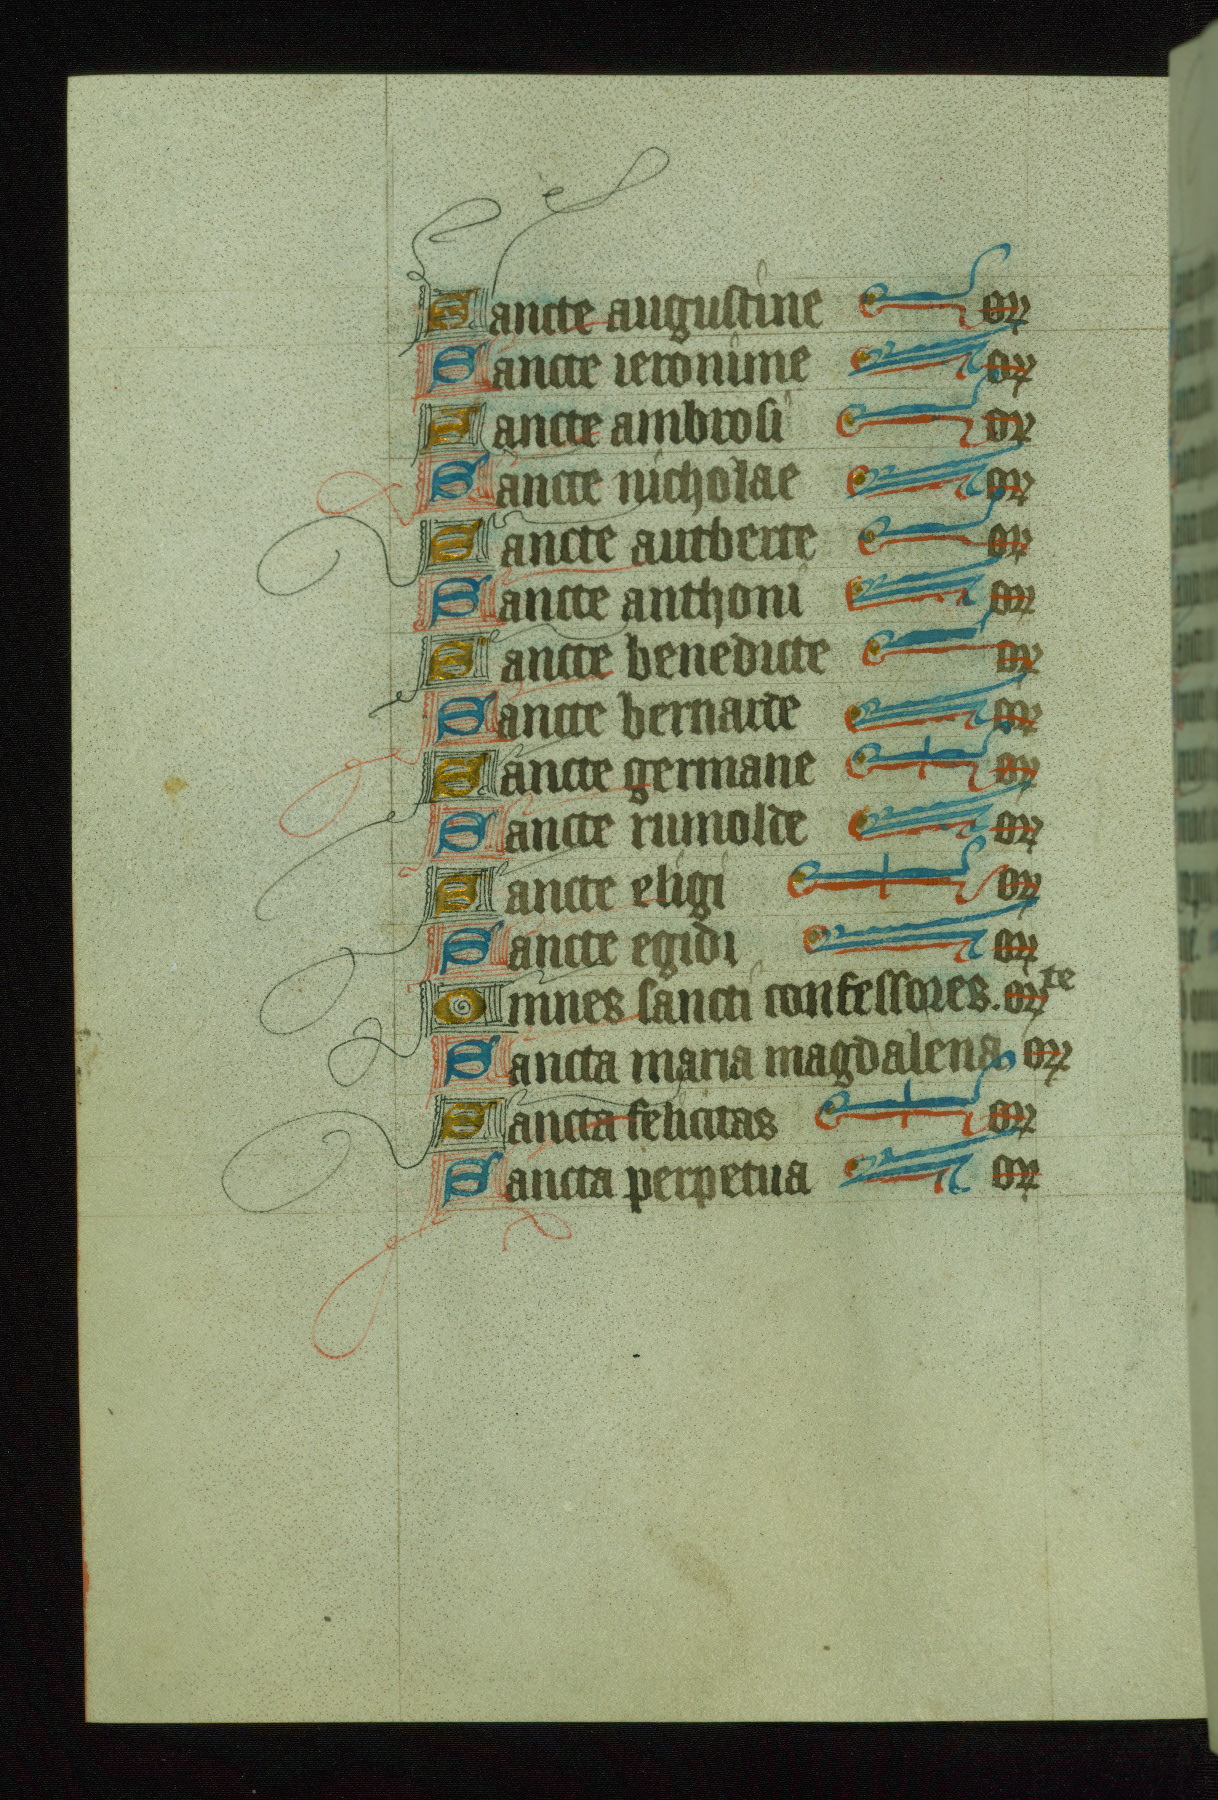 Sancte augustine or
Sancte ieronime or
Sancte ambrosi or
Sancte nicholae or
Sancte autberte or
Sancte anthoni or
Sancte benedicte or
Sancte bernarde or
Sancte germane or
Sancte rumolde or
Sancte eligi or
Sancte egidi or
Omnes sancti confessores. orte
Sancta maria magdalena, or
Sancta felicitas or
Sancta perpetua or